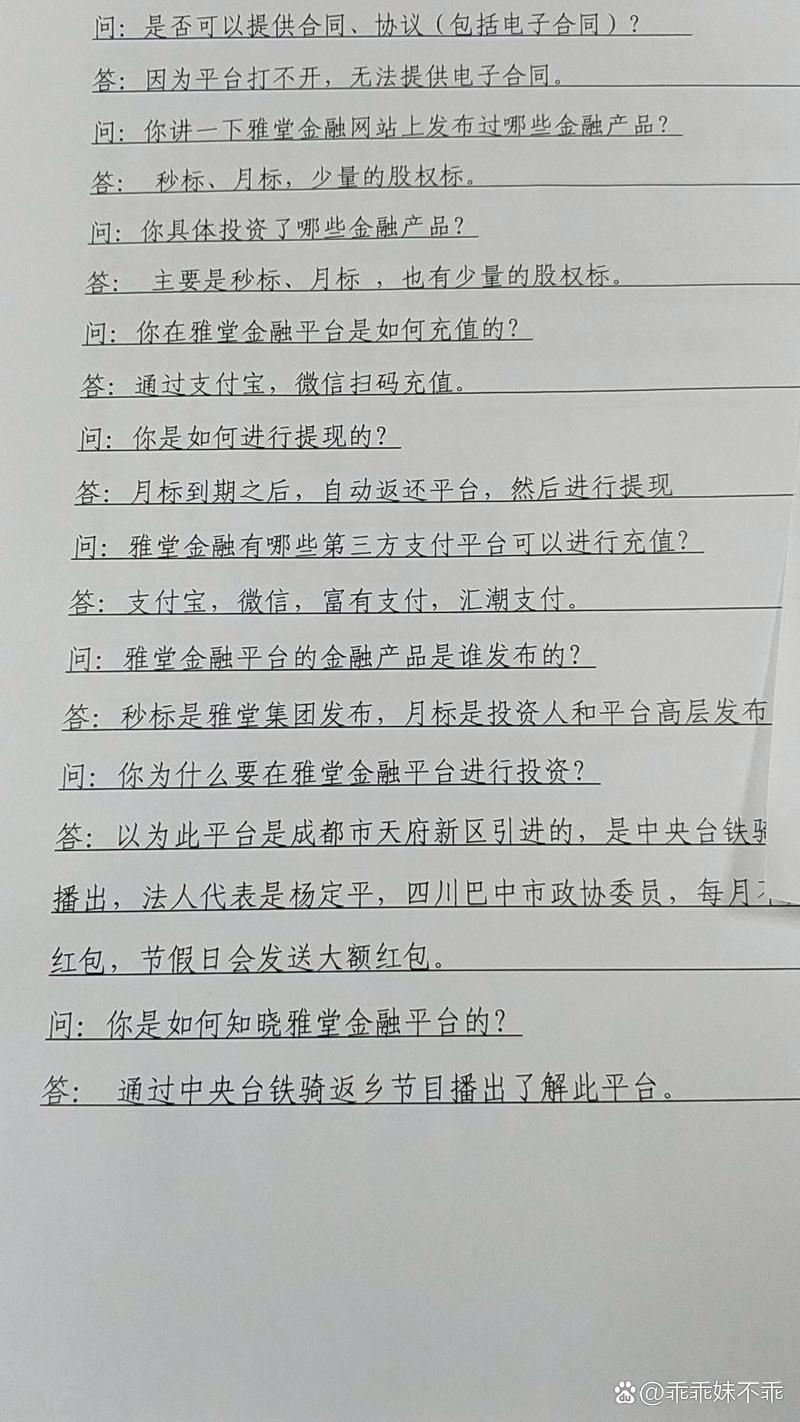 问：是否可以提供合同、协议（包括电子合同）？
答：因为平台打不开，无法提供电子合同。
问：你讲一下雅堂金融网站上发布过哪些金融产品？
答： 秒标、月标，少量的股权标。
问：你具体投资了哪些金融产品？
答： 主要是秒标、月标 ，也有少量的股权标。
问：你在雅堂金融平台是如何充值的？
答：通过支付宝，微信扫码充值。
问：你是如何进行提现的？
答：月标到期之后，自动返还平台，然后进行提现
问：雅堂金融有哪些第三方支付平台可以进行充值？
答：支付宝，微信，富有支付，汇潮支付。
问：雅堂金融平台的金融产品是谁发布的？
答：秒标是雅堂集团发布，月标是投资人和平台高层发布
问：你为什么要在雅堂金融平台进行投资？
答：以为此平台是成都市天府新区引进的，是中央台铁骑
播出，法人代表是杨定平，四川巴中市政协委员，每月
红包，节假日会发送大额红包。
问：你是如何知晓雅堂金融平台的？
答： 通过中央台铁骑返乡节目播出了解此平台。
du @乖乖妹不乖